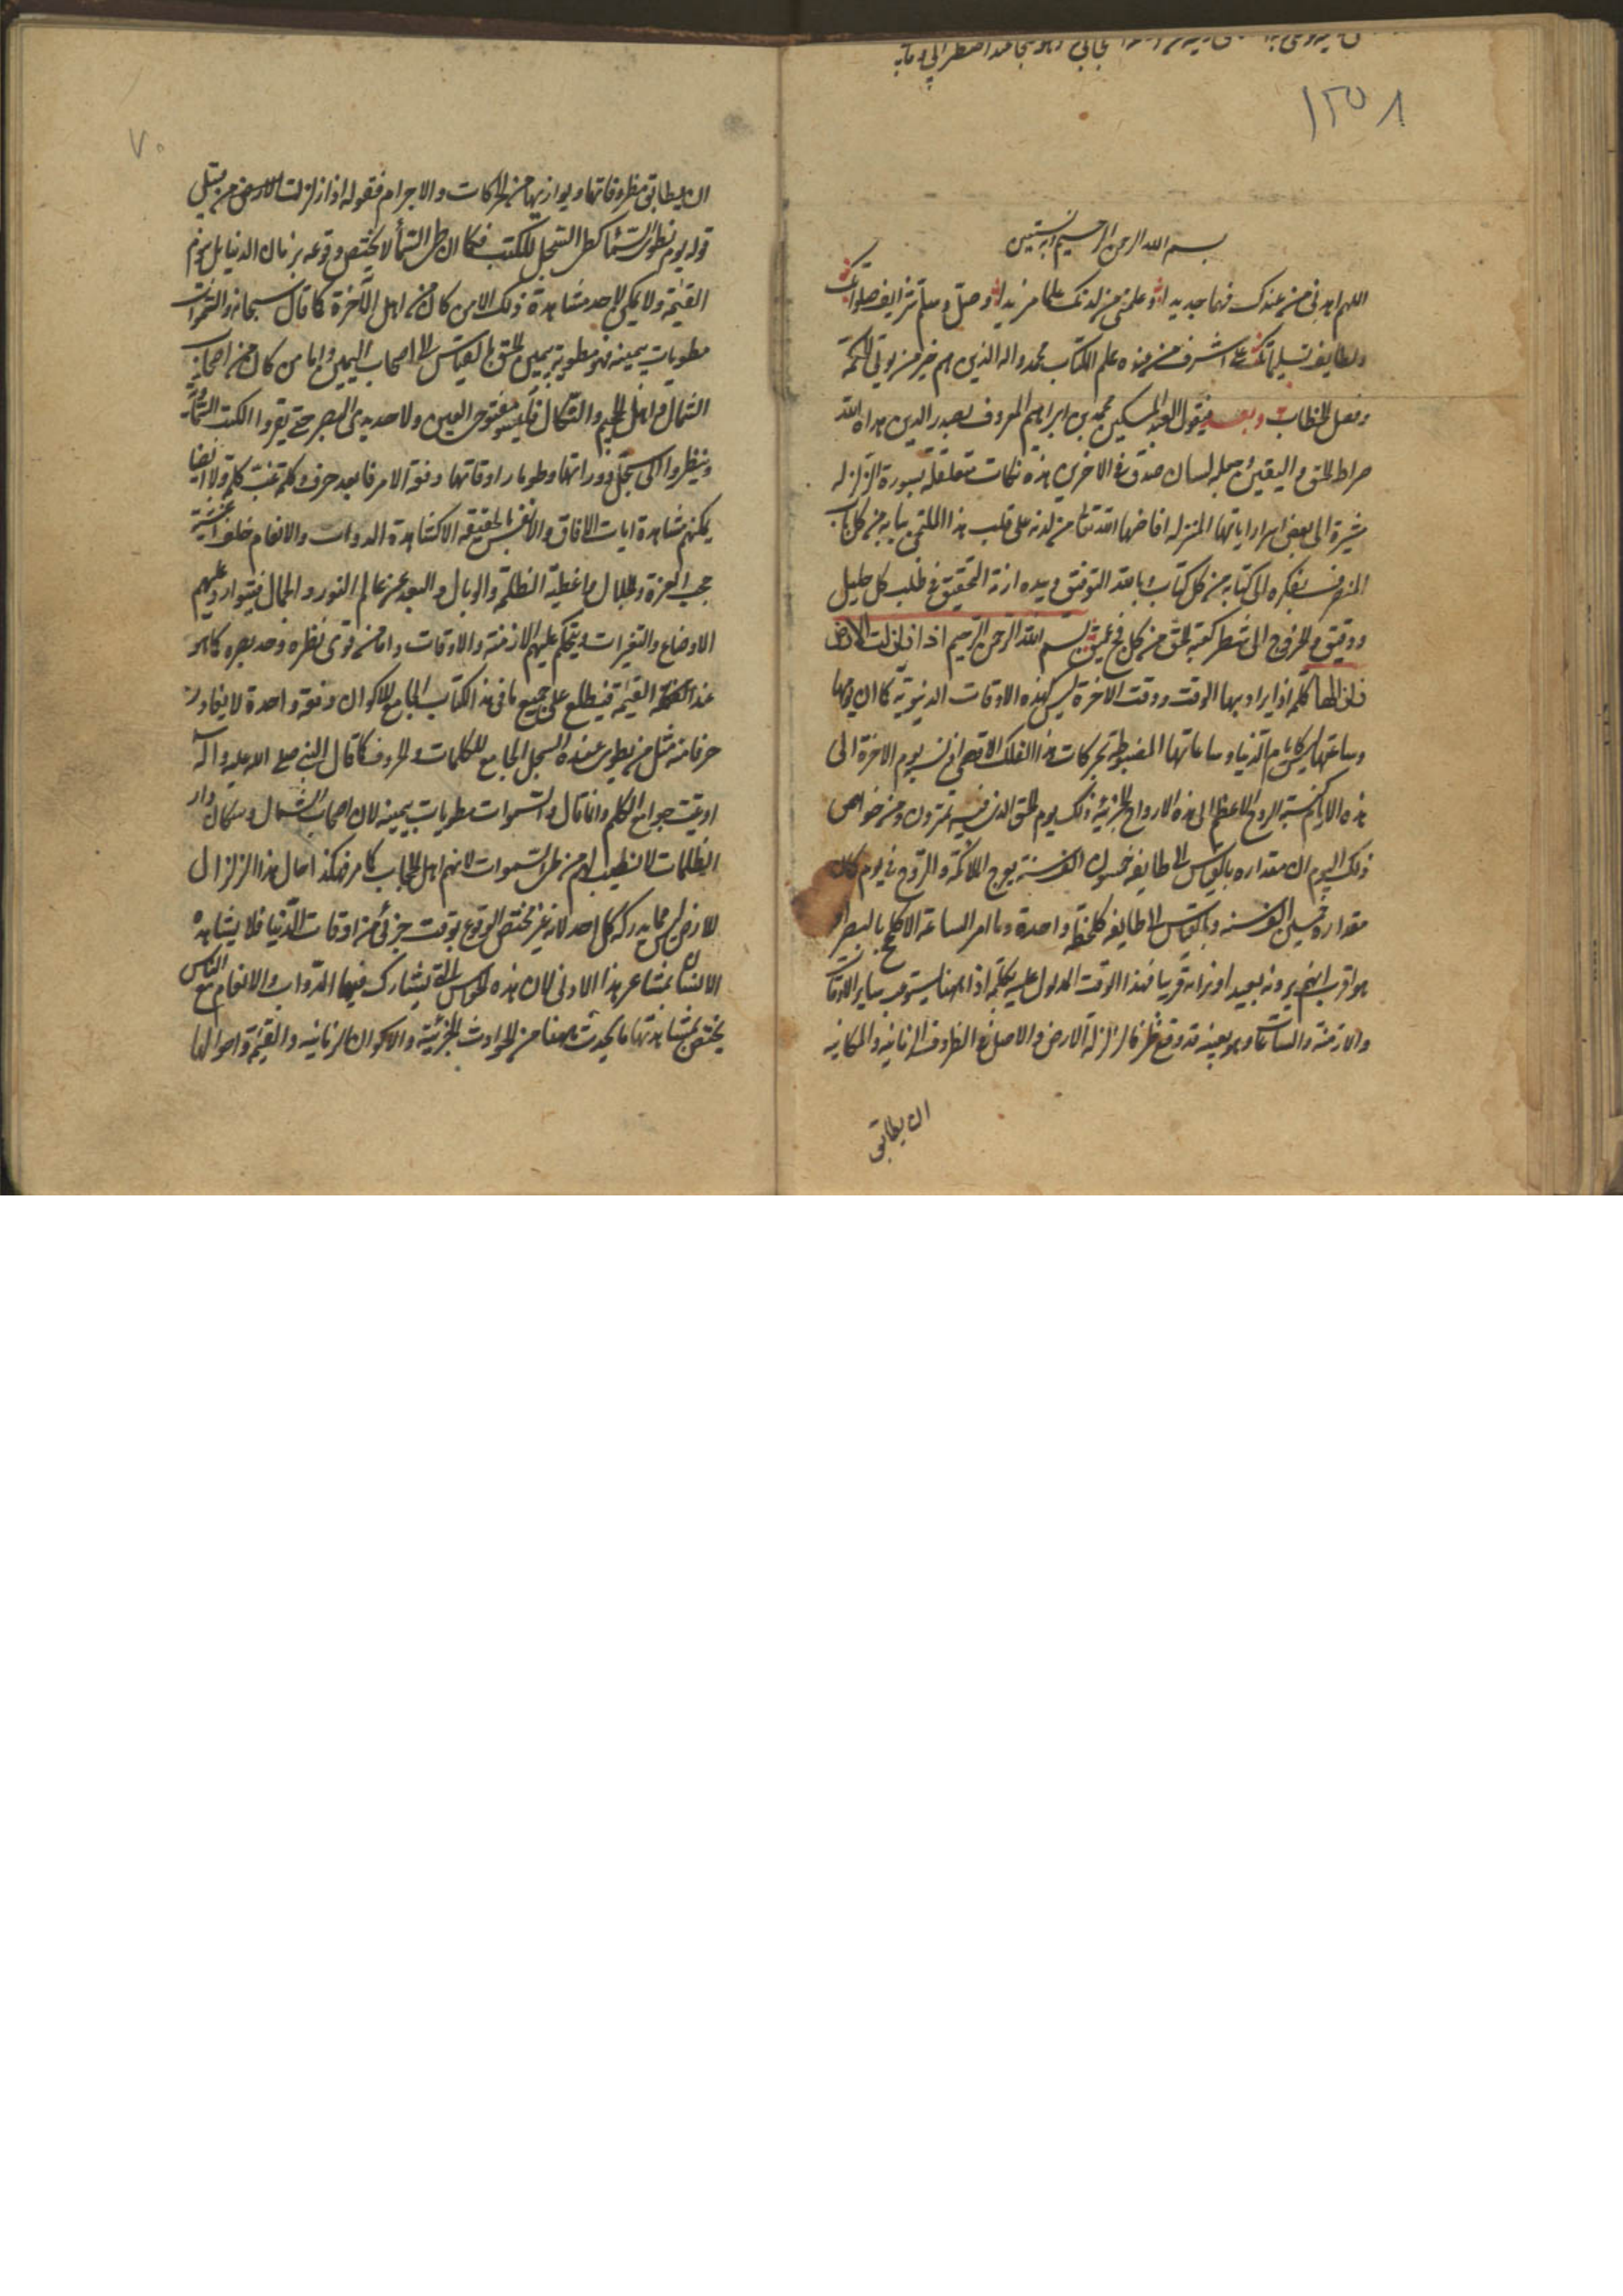 ١٢٥٨
بسم الله الرحمن الرحيم وبه نستعين
اللهم اهدنى من عندك فهما جديدا وعلمنى من لدنك علما مزيدا وصل وسلم شرايف صلواتك
ولطايف تسليماتك على اشرف من عنده علم الكتاب محمد واله الذين هم خير من يوتى الحكمة
وفصل الخطاب وبعد فيقول العبد المسكين محمد بن ابراهيم المعروف بصدر الدين هداه الله
صراط الحق واليقين وجعله لسان صدق فى الاخرين هذه نكات متعلقة بسورة الزلزله
مشيرة الى بعض اسرار اياتها المنزله افاضها الله تعالى من لدنه على قلب هذا الملتجى ببابه من كل باب
المنصرف بفكره الى كتابه من كل كتاب وبالله التوفيق وبيده ازمة التحقيق فى طلب كل جليل
ودقيق والخروج الى شطر كعبة الحق من كل فج عميق بسم الله الرحمن الرحيم اذا زلزلت الارض
زلزالها كلمة اذا يراد بها الوقت ووقت الاخرة ليس كهذه الاوقات الدنيوية كما ان يومها
وساعتها ليس كايام الدنيا وساعاتها المضبوطة بحركات هذا الفلك الاقصى اذ نسبة يوم الاخرة الى
هذه الايام كنسبة الروح الاعظم الى هذه الارواح الجزئية ذلك يوم الحق الذى فيه تمترون ومن خواص
ذلك اليوم ان مقداره بالقياس الى طايفة خمسون الف سنة يعرج الملائكة والروح فى يوم كان
مقداره خمسين الف سنه وبالقياس الى طايفه كلحظة واحدة وما امر الساعة الا كلمح بالبصر او
هو اقرب انهم يرونه بعيدا ونراه قريبا فهذا الوقت المدلول عليه بكلمة اذا ههنا يستوعب ساير الاوقات
والازمنة والساعات وهو بعينه قد وقع ظرفا لزلزلة الارض والاصل فى الظروف الزمانية والمكانيه
ان يطابق
٧٠
ان يطابق مظروفاتها ويوازيها من الحركات والاجرام فقوله اذا زلزلت الارض من قبيل
قوله يوم نطوى السماء كطى السجل للكتب فكما ان طى السماء لا يختص وقوعه بزمان الدنيا بل بيوم
القيمة ولا يمكن لاحد مشاهدة ذلك الا من كان من اهل الآخرة كما قال سبحانه والسموات
مطويات بيمينه فهو مطوية بيمين الحق بالقياس الى اصحاب اليمين واما من كان من اصحاب
الشمال واهل الجحيم والنكال فليسوا مفتوحى العين ولا حديدى البصر حتى يقروا الكتب السماوية
وينظروا الى سجل دوراتها وطومار اوقاتها دفعة الا حرفا بعد حرف وكلمة غب كلمة ولا ايضا
يمكنهم مشاهدة ايات الافاق والانفس بالحقيقه الا كمشاهدة الدواب والانعام خلف اغشية
حجب العزة والجلال واغطية الظلمة والوبال والبعد عن عالم النور والجمال فيتوارد عليهم
الاوضاع والتغيرات ويتحكم عليهم الازمنة والاوقات واما من قوى نظره وحد بصره كما هو
عند القيمة فيطلع على جميع ما فى هذا الكتاب الجامع للاكوان دفعة واحدة لا يغادر
حرفا منه مثل من يطوى عنده السجل الجامع للكلمات والحروف كما قال النبى صلى الله عليه وآله
اوتيت جوامع الكلم وانما قال والسموات مطويات بيمينه لان اصحاب الشمال وسكان دار
الظلمات لا نصيب لهم من طى السموات لانهم اهل الحجاب كما مر فهكذا حال هذا الزلزال
للارض ليس مما يدركه كل احد لانه غير مختص الوقوع بوقت جزئى من اوقات الدنيا فلا يشاهده
الانسان بمشاعر هذا الادنى لان هذه الحواس التى يشارك فيها الدواب والانعام مع الناس
يختص بمشاهدتها ما يحدث ههنا من الحوادث الجزئية والاكوان الزمانيه والقيمة واحوالها